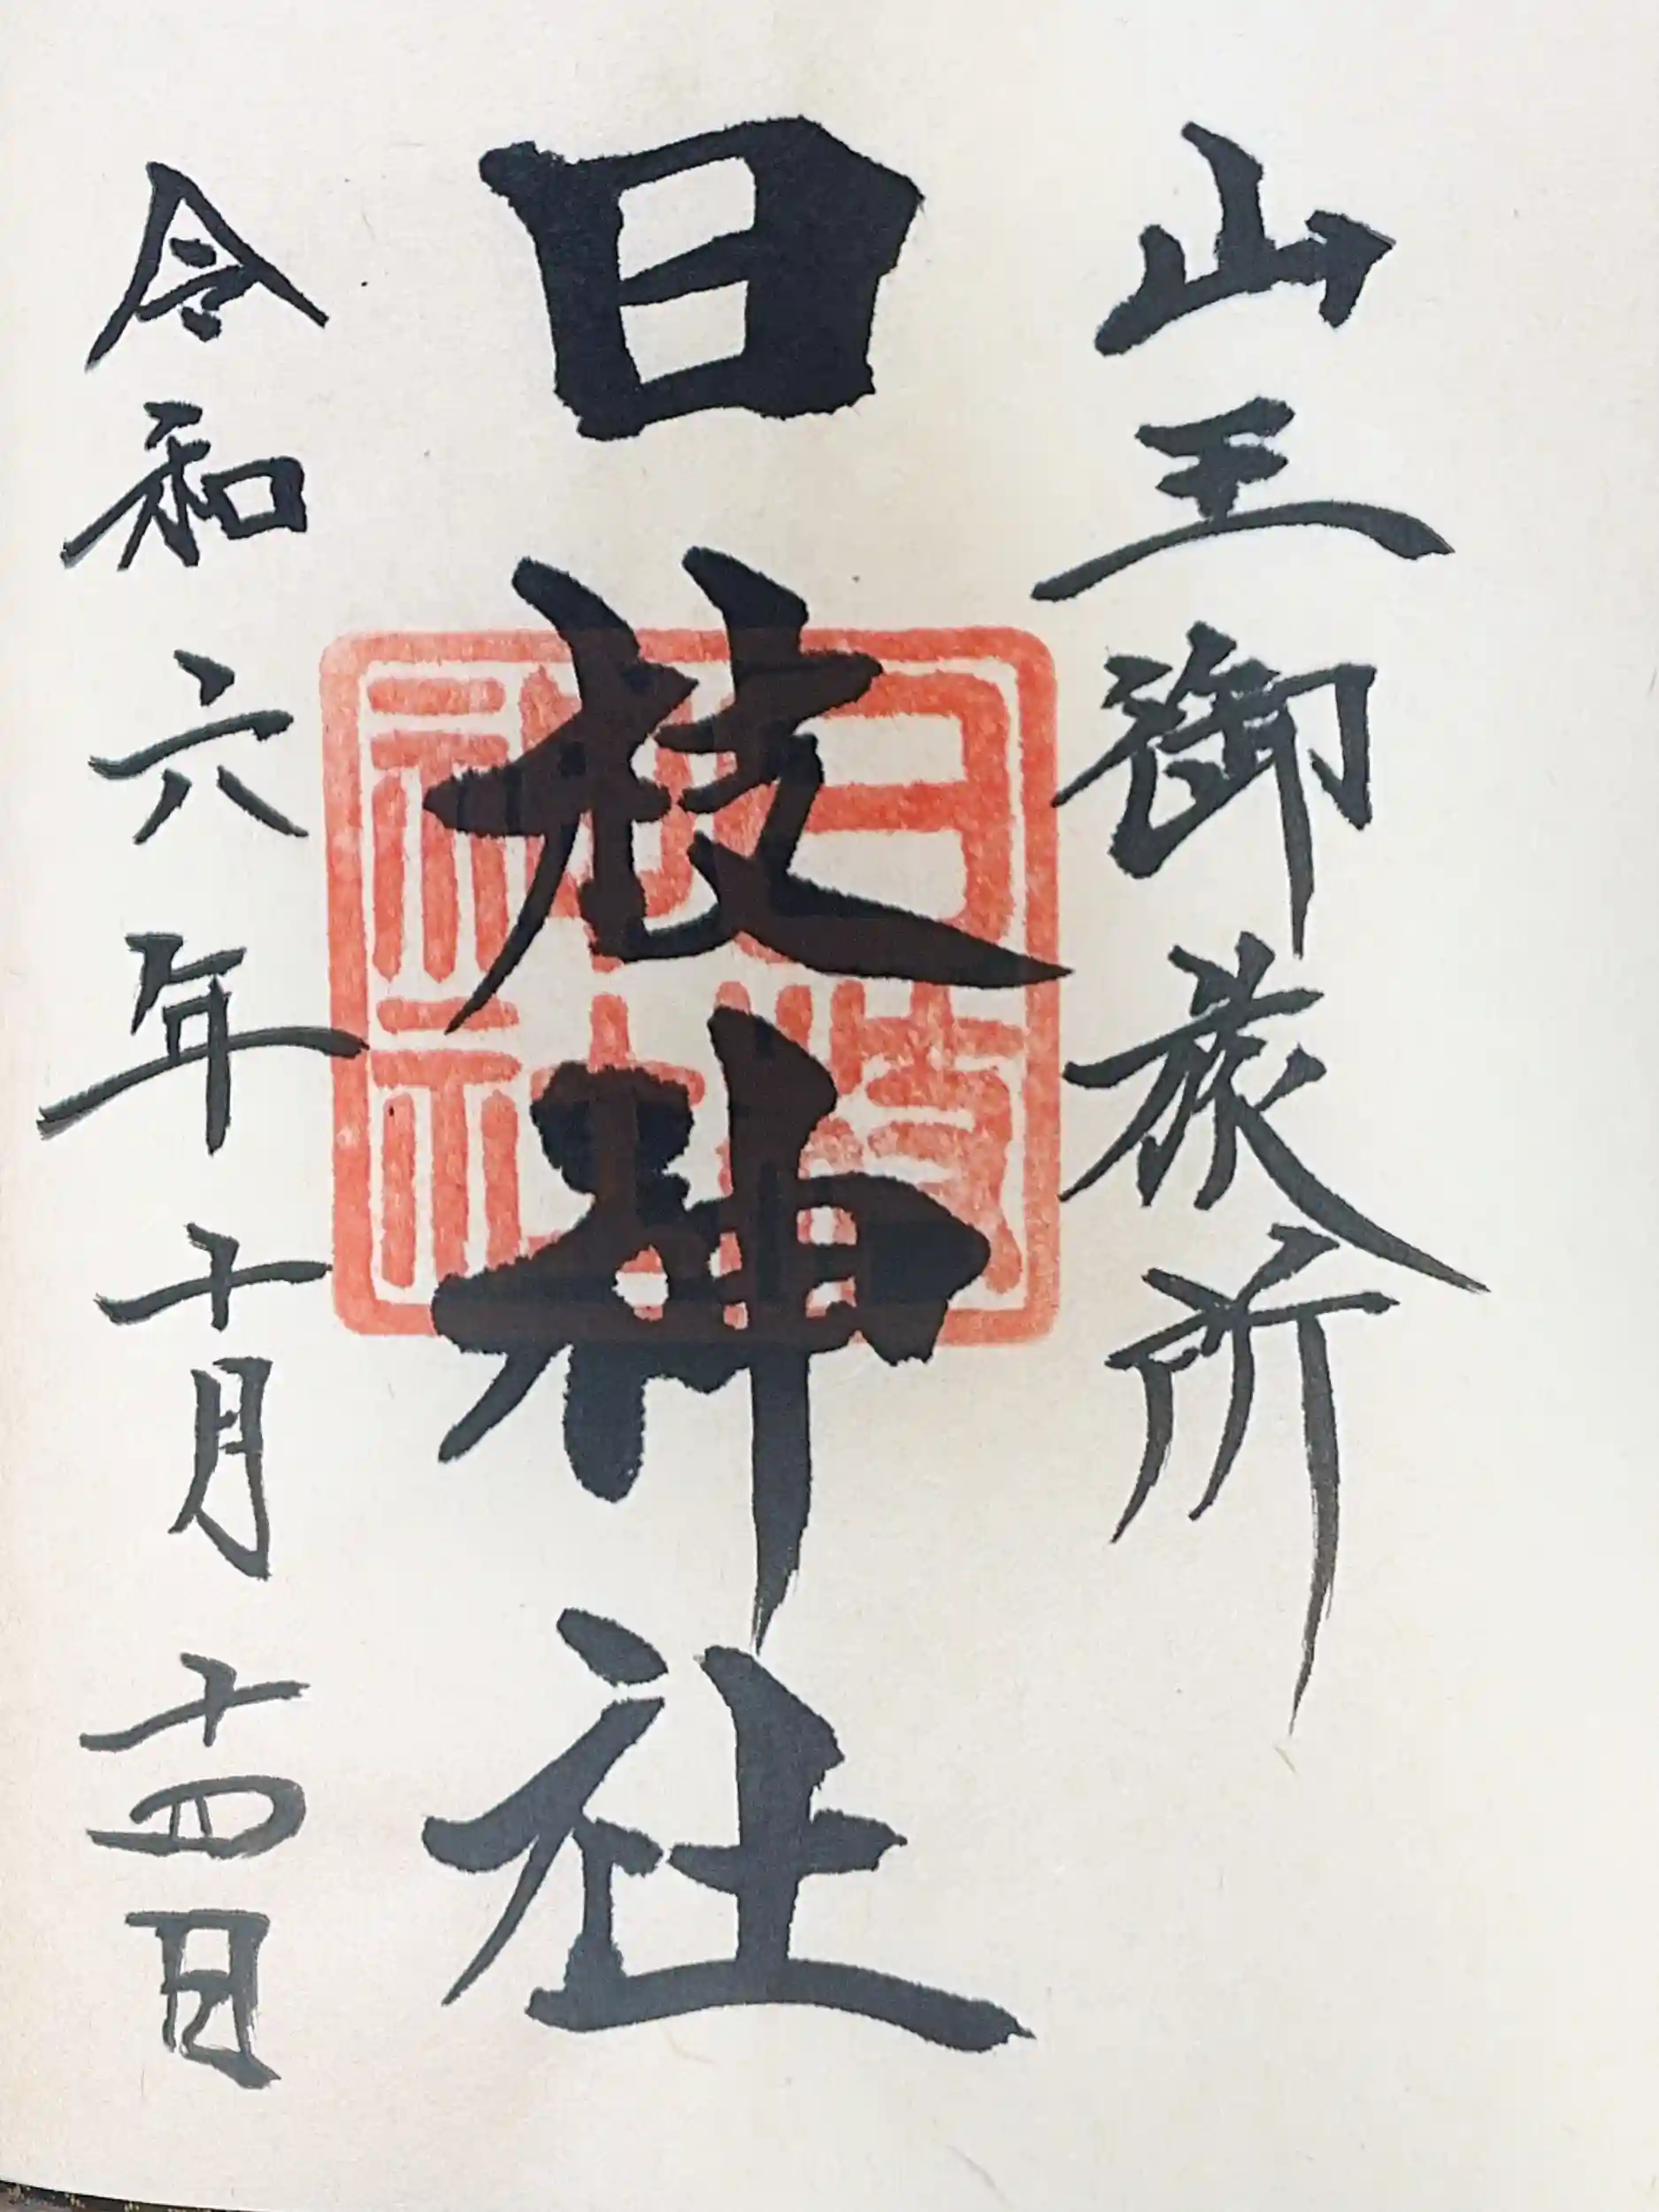 山王御旅所
日枝神社
令和六年十月十四日
日枝神社